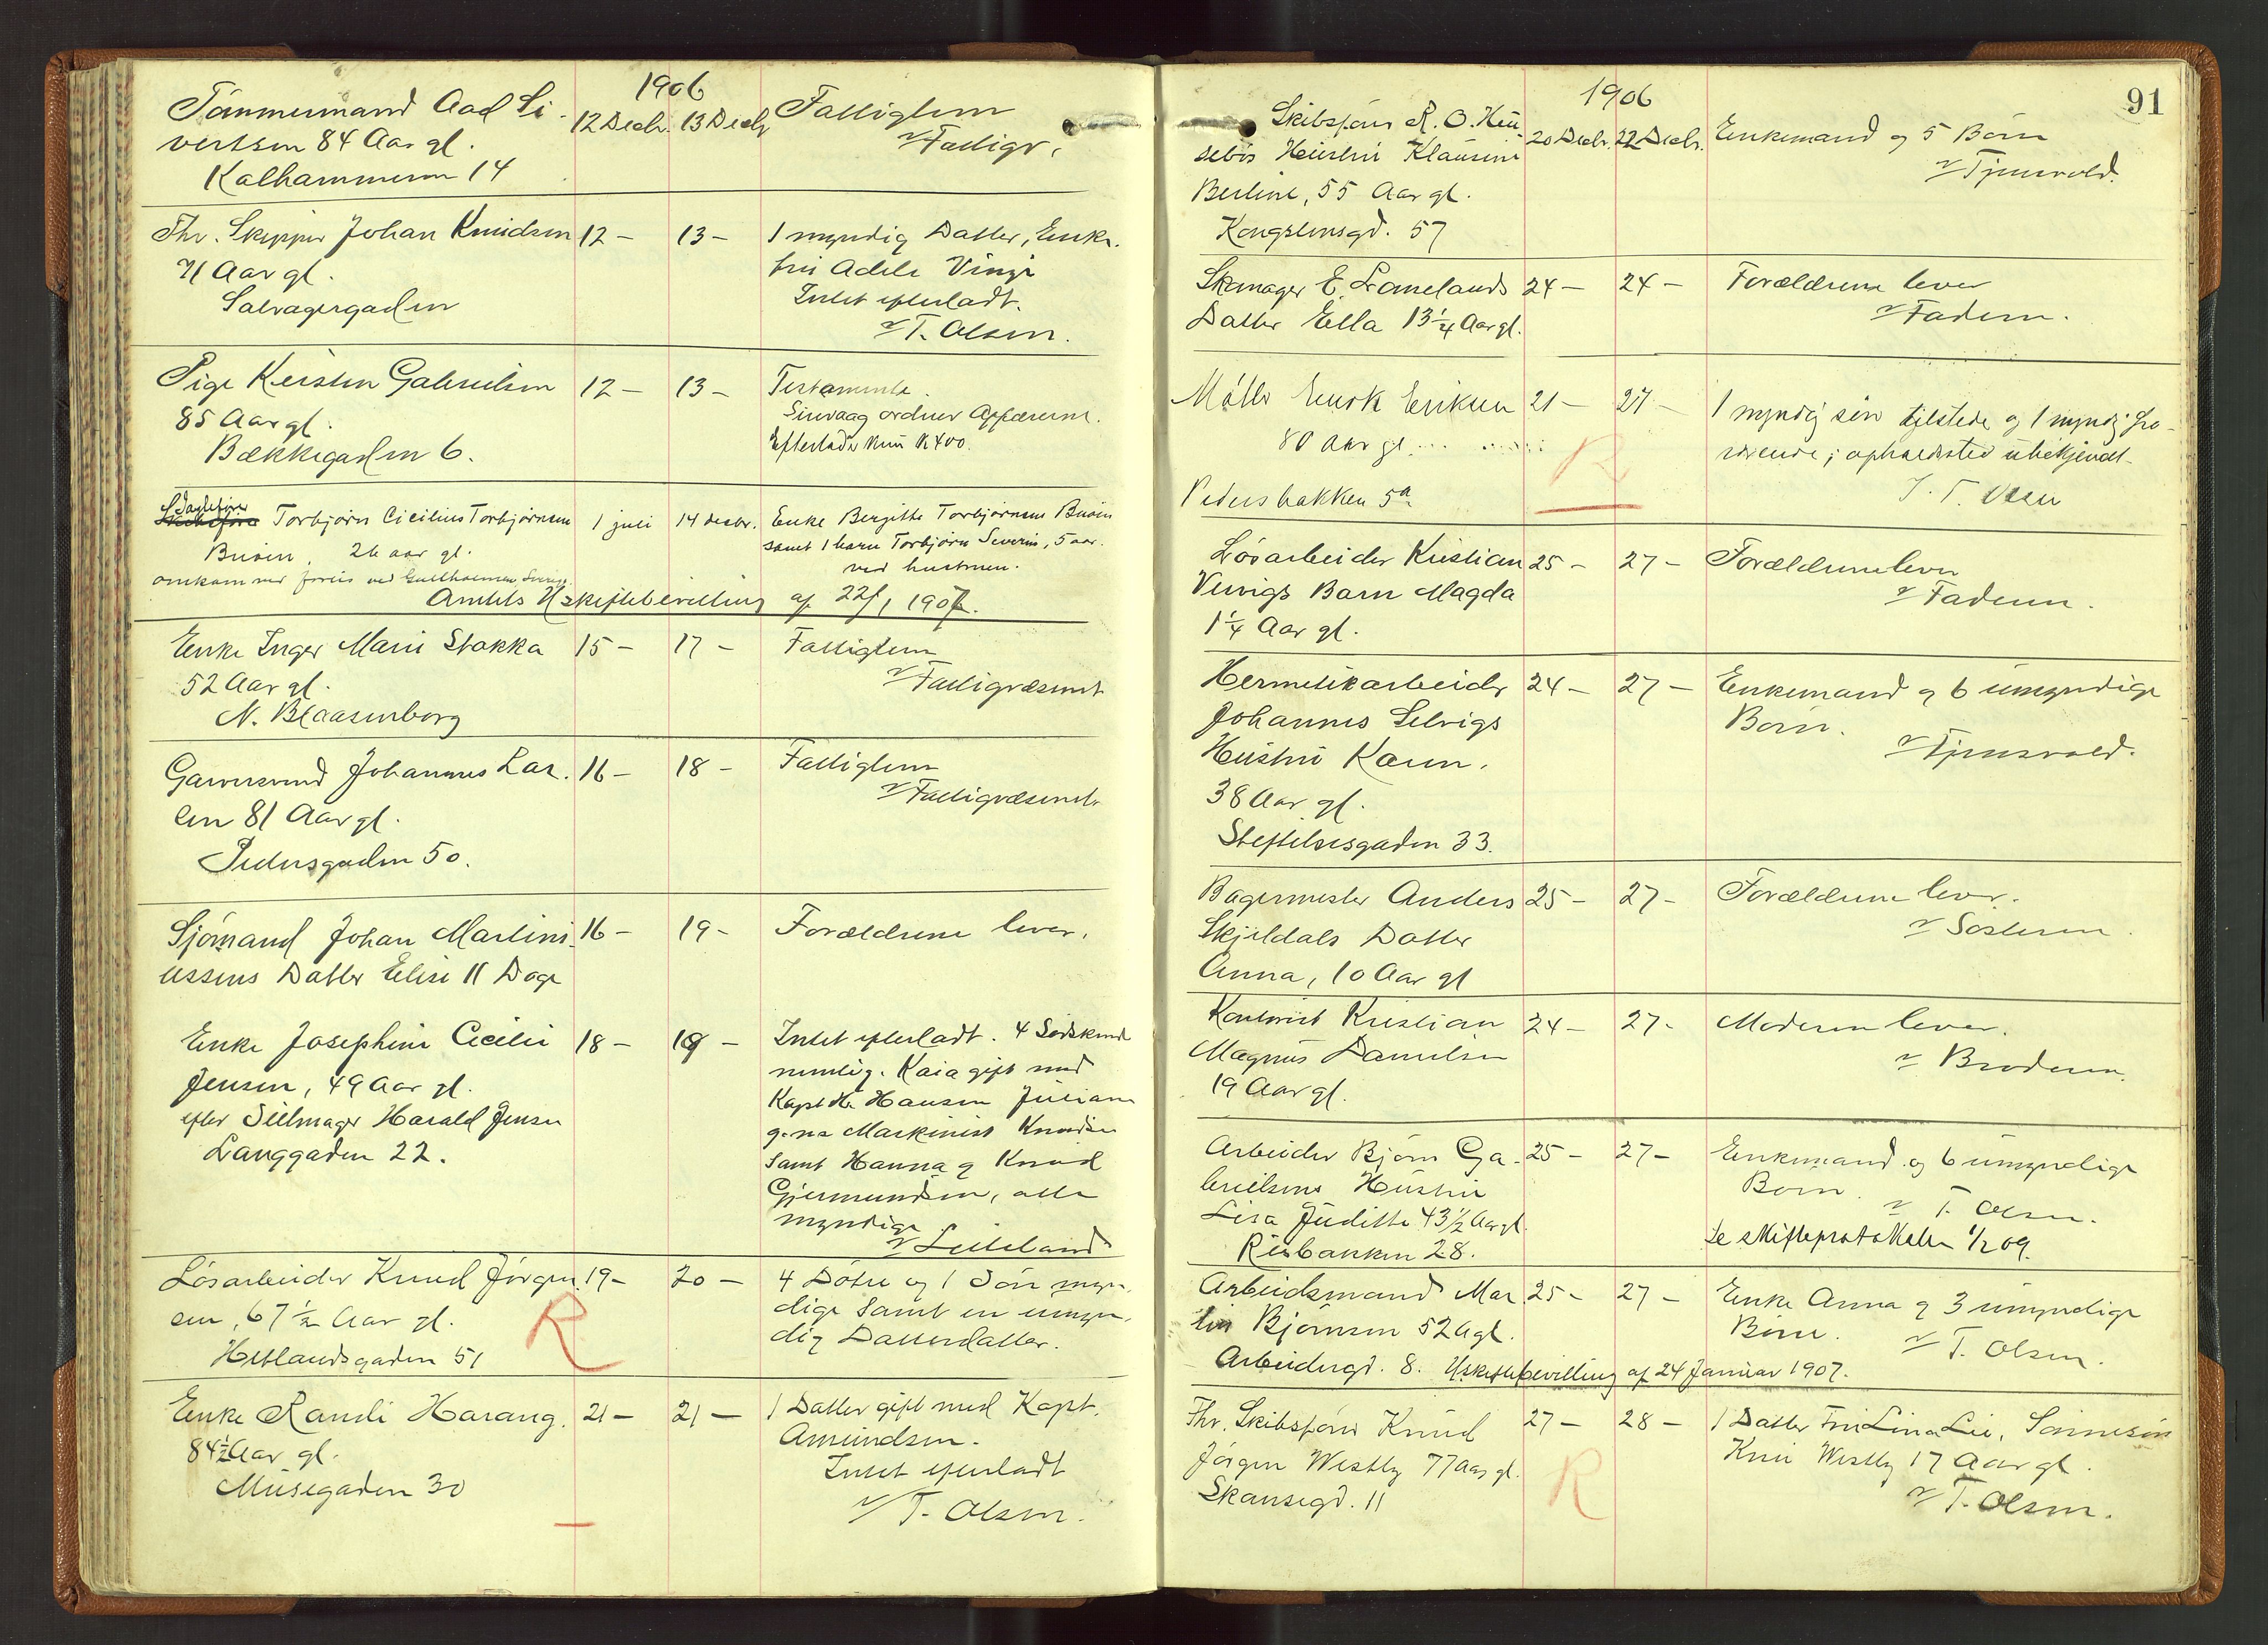 1906
Tömmermand Aad Si-
vertsen 84 Aar gl.
Kalhammeren 14
12 Decbr. 13 Decbr
Fattiglem
v/ Fattigv.
Fhv. Skipper Johan Knudsen 12 – 13 –
71 Aar gl.
Salvagergaden
1 myndig Datter, Enke-
fru Adele Vinje
Intet efterladt.
v/ T. Olsen.
Pige Kristen Gabrielsen 12 – 13 –
85 Aar gl.
Bækkegaden 6.
Testamente.
Sirevaag ordner Affærerne.
Efterlader kun K 400.
Torbjörn Cicilius Torbjörnsen 1 juli 14 decbr.
Buöen, 26 aar gl.
omkom ved forlis ved Gullholmen
Enke Bergitte Torbjörnsen Buöen
samt 1 barn Torbjörn Severin, 5 aar.
ved hustruen.
Amtets Uskiftebevilling af 22/1 1907.
Enke Inger Marie Stokka 15 – 17 –
52 Aar gl.
N. Blaasenborg
Fattiglem
v/ Fattigvæsenet
Garversvend Johannes Lar- 16 – 18 –
sen 81 Aar gl.
Pedersgaden 50.
Fattiglem
v/ Fattigvæsenet
Sjömand Johan Martini- 16 – 19 –
ussens Datter Elise 11 Dage
Forældrene lever.
Enke Josephine Cecilie 18 – 19 –
Jensen, 49 Aar gl.
efter Seilmager Harald Jensen
Langgaden 22.
Intet efterladt. 4 Södskend
nemlig. Kaia gift med
Kapt Hansen
Maskinist Knudsen
samt Hanna og Knud
Gjermundsen, alle
myndige.
Lösarbeider Knud Jörgen- 19 – 20 –
sen, 67 1/2 Aar gl.
Hetlandsgaden 51
R
4 Dötre og 1 Sön myn-
dige samt en umyn-
dig Datterdatter.
Enke Randi Harang. 21 – 21 –
84 1/2 Aar gl.
Musegaden 30
1 Datter gift med Kapt.
Amundsen.
Intet efterladt
v/ T. Olsen.
91
1906
Skibsförer R. O. Hau-
sebös Hustru Klausine
Berline, 55 Aar gl.
Kongstensgd. 57
20 Decbr. 22 Decbr.
Enkemand og 5 Börn
v/ Tjensvold.
Skomager E. Lomelands 24 – 24 –
Datter Ella 13 1/4 Aar gl.
Forældrene lever
v/ Faderen.
Erik Eriksen 21 – 27 –
80 Aar gl.
Pedersbakken 5a
R
1 myndig sön tilstede og 1 myndig fra-
værende; opholdssted ubekjendt
T. Olsen
Lösarbeider Kristian 25 – 27 –
Veivigs Barn Magda
1 1/4 Aar gl.
Forældrene lever
v/ Faderen.
Hermetikarbeider 24 – 27 –
Johannes Selvigs
Hustru Karen.
38 Aar gl.
Steftelsesgaden 33.
Enkemand og 6 umyndige
Börn.
v/ Tjensvold.
Bagermester Anders 25 – 27 –
Skjeldals Datter
Anna, 10 Aar gl
Forældrene lever.
v/ Sösteren.
Kontorist Kristian 24 – 27 –
Magnus Danielsen
19 Aar gl.
Moderen lever.
v/ Broderen.
Arbeider Björn Ga- 25 – 27 –
brielsens Hustru
Lisa Juditte 43 1/2 Aar gl.
Risbanken 28.
Enkemand og 6 umyndige
Börn. v/ T. Olsen.
Se skifteprotokollen 1/2 09.
Arbeidsmand Mar- 25 – 27 –
tin Björnsen 52 A gl.
Arbeidergd. 8. Uskiftebevilling af 24 Januar 1907.
Enke Anna og 3 umyndige
Börn.
v/ T. Olsen.
Fhv. Skibsförer Knud 27 – 28 –
Jörgen Westby 77 Aar gl.
Skansegd. 11
R
1 Datter Fru Lina Lie, Sönnesön
Knu Westby 17 Aar gl.
v/ T. Olsen.